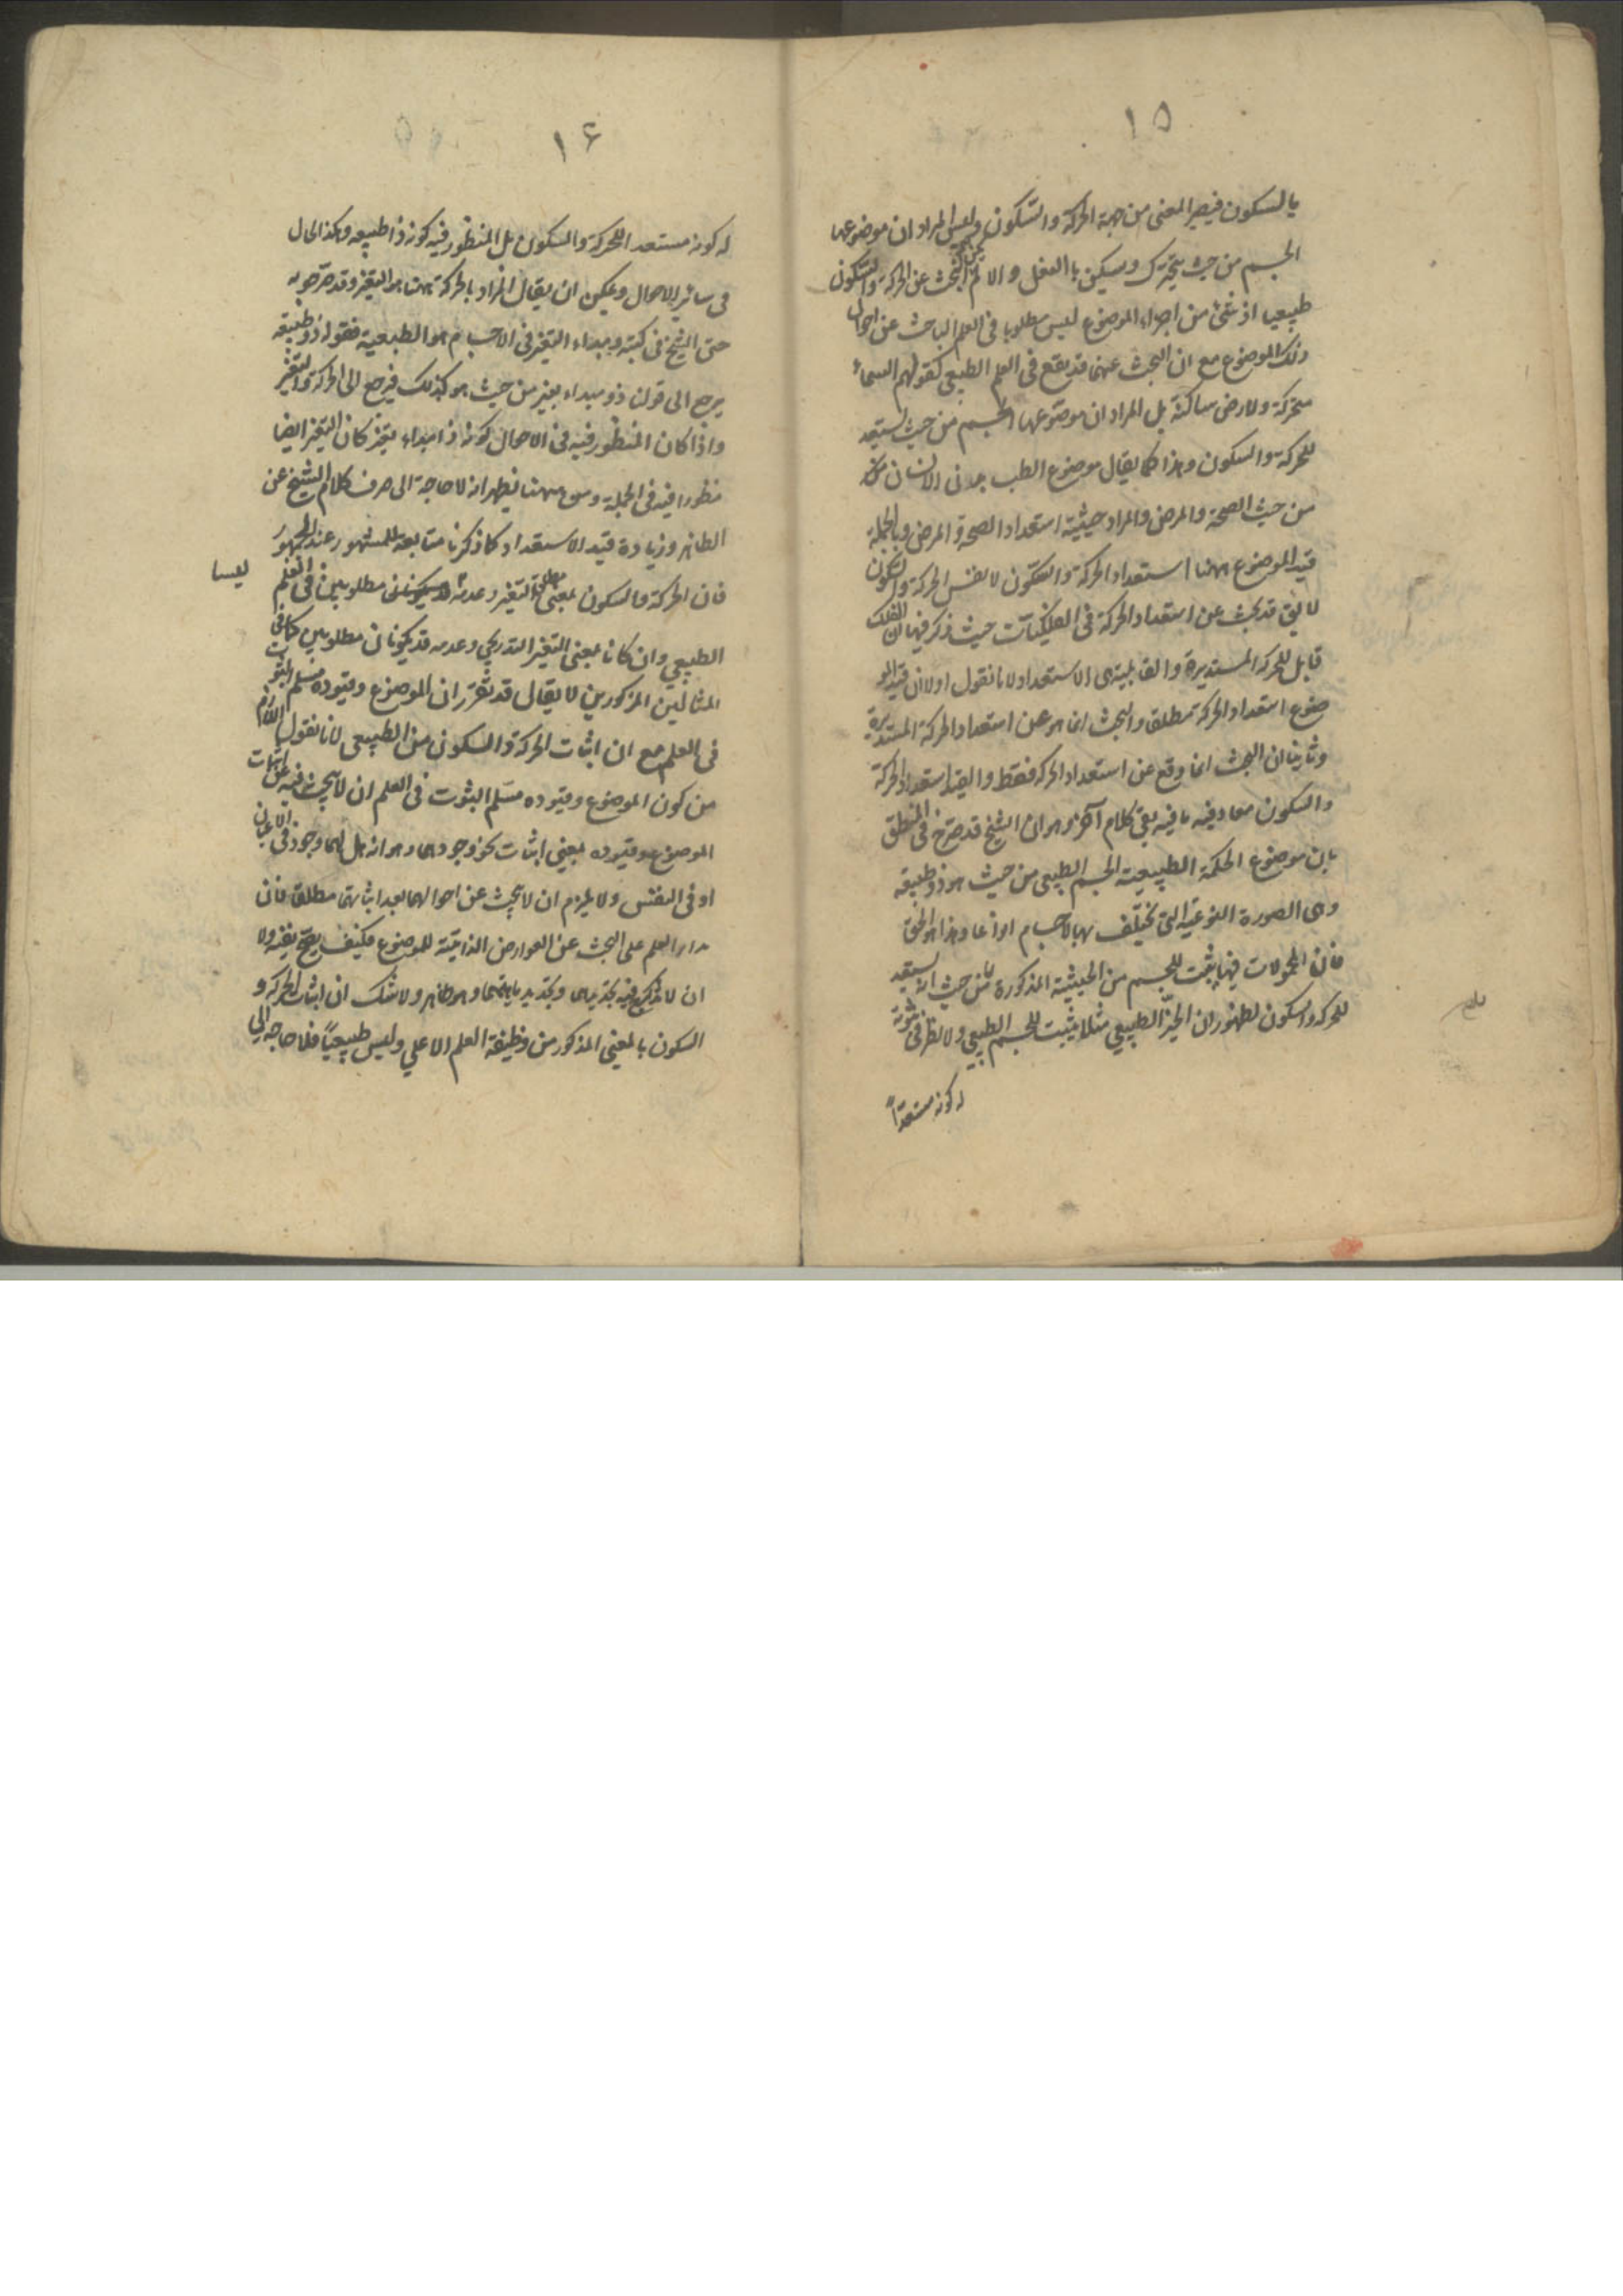 ١٥
بالسكون فيصير المعنى من جهة الحركة والسكون وليس المراد ان موضوعها
الجسم من حيث يتحرك ويسكن بالفعل والا لم يكن البحث عن الحركة والسكون
طبيعيا اذ شئ من اجزاء الموضوع ليس مطلوبا فى العلم الباحث عن احوال
ذلك الموضوع مع ان البحث عنهما قد يقع فى العلم الطبيعى كقولهم السماء
متحركة والارض ساكنة بل المراد ان موضوعها الجسم من حيث يستعد
للحركة والسكون وهذا كما يقال موضوع الطب بدن الانسان
من حيث الصحة والمرض والمراد حيثية استعداد الصحة والمرض وبالجملة
قيد الموضوع ههنا استعداد الحركة والسكون لا نفس الحركة والسكون
لا يقال قد بحث عن استعداد الحركة فى الفلكيات حيث ذكر فيها ان الفلك
قابل للحركة المستديرة والقابلية هى الاستعداد لانا نقول اولا ان قيد المو
ضوع استعداد الحركة مطلقا والبحث انما هو عن استعداد الحركة المستديرة
وثانيا ان البحث انما وقع عن استعداد الحركة فقط والقيد استعداد الحركة
والسكون معا وفيه ما فيه بقى كلام آخر وهو ان الشيخ قد صرح فى المنطق
بان موضوع الحكمة الطبيعية الجسم الطبيعى من حيث هو ذو طبيعة
وهى الصورة النوعية التى تختلف بها الاجسام انواعا وهذا هو الحق
فان المحمولات فيها يثبت للجسم من الحيثية المذكورة لا من حيث انه يستعد
للحركة والسكون لظهور ان الحيز الطبيعي مثلا يثبت للجسم الطبيعى ولا نظر فى ثبوته
له كونه مستعداً
١٤
له كونه مستعدا للحركة والسكون بل المنظور فيه كونه ذا طبيعه وهكذا الحال
فى سائر الاحوال ويمكن ان يقال المراد بالحركة ههنا هو التغير وقد صرح به
حتى الشيخ فى كتبه ومبداء التغير فى الاجسام هو الطبيعية فقوله ذو طبيعة
يرجع الى قولنا ذو مبداء تغير من حيث هو كذلك فيرجع الى الحركة والتغير
واذا كان المنظور فيه فى الاحوال كونه ذا مبداء تغير كان التغير ايضا
منظورا فيه فى الجملة ومن ههنا يظهر انه لا حاجة الى صرف كلام الشيخ عن
الظاهر وزيادة قيد الاستعداد كما ذكرنا متابعة للمشهور عند الجمهور
فان الحركة والسكون بمعنى مطلق التغير وعدمه ليسا مطلوبين فى العلم
الطبيعى وان كانا بمعنى التغير التدريجى وعدمه قد يكونان مطلوبين كما فى
المثالين المذكورين لا يقال قد تقرر ان الموضوع وقيوده مسلم الثبوت
فى العلم مع ان اثبات الحركة والسكون من الطبيعى لانا نقول اللازم
من كون الموضوع وقيوده مسلم الثبوت فى العلم ان لا يبحث فيه عن اثبات
الموضوع وقيوده بمعنى اثبات نحو وجودهما وهو انه هل لهما وجود فى الاعيان
او فى النفس ولا يلزم ان لا يبحث عن احوالهما بعد اثباتهما مطلقا فان
مدار العلم على البحث عن العوارض الذاتية للموضوع فكيف يصح نفيه ولا
ان لا يذكر فيه تحديدهما وتحديد ماهيتهما وهو ظاهر ولا شك ان اثبات الحركة و
السكون بالمعنى المذكور من وظيفة العلم الاعلى وليس طبيعيًا فلا حاجة الى